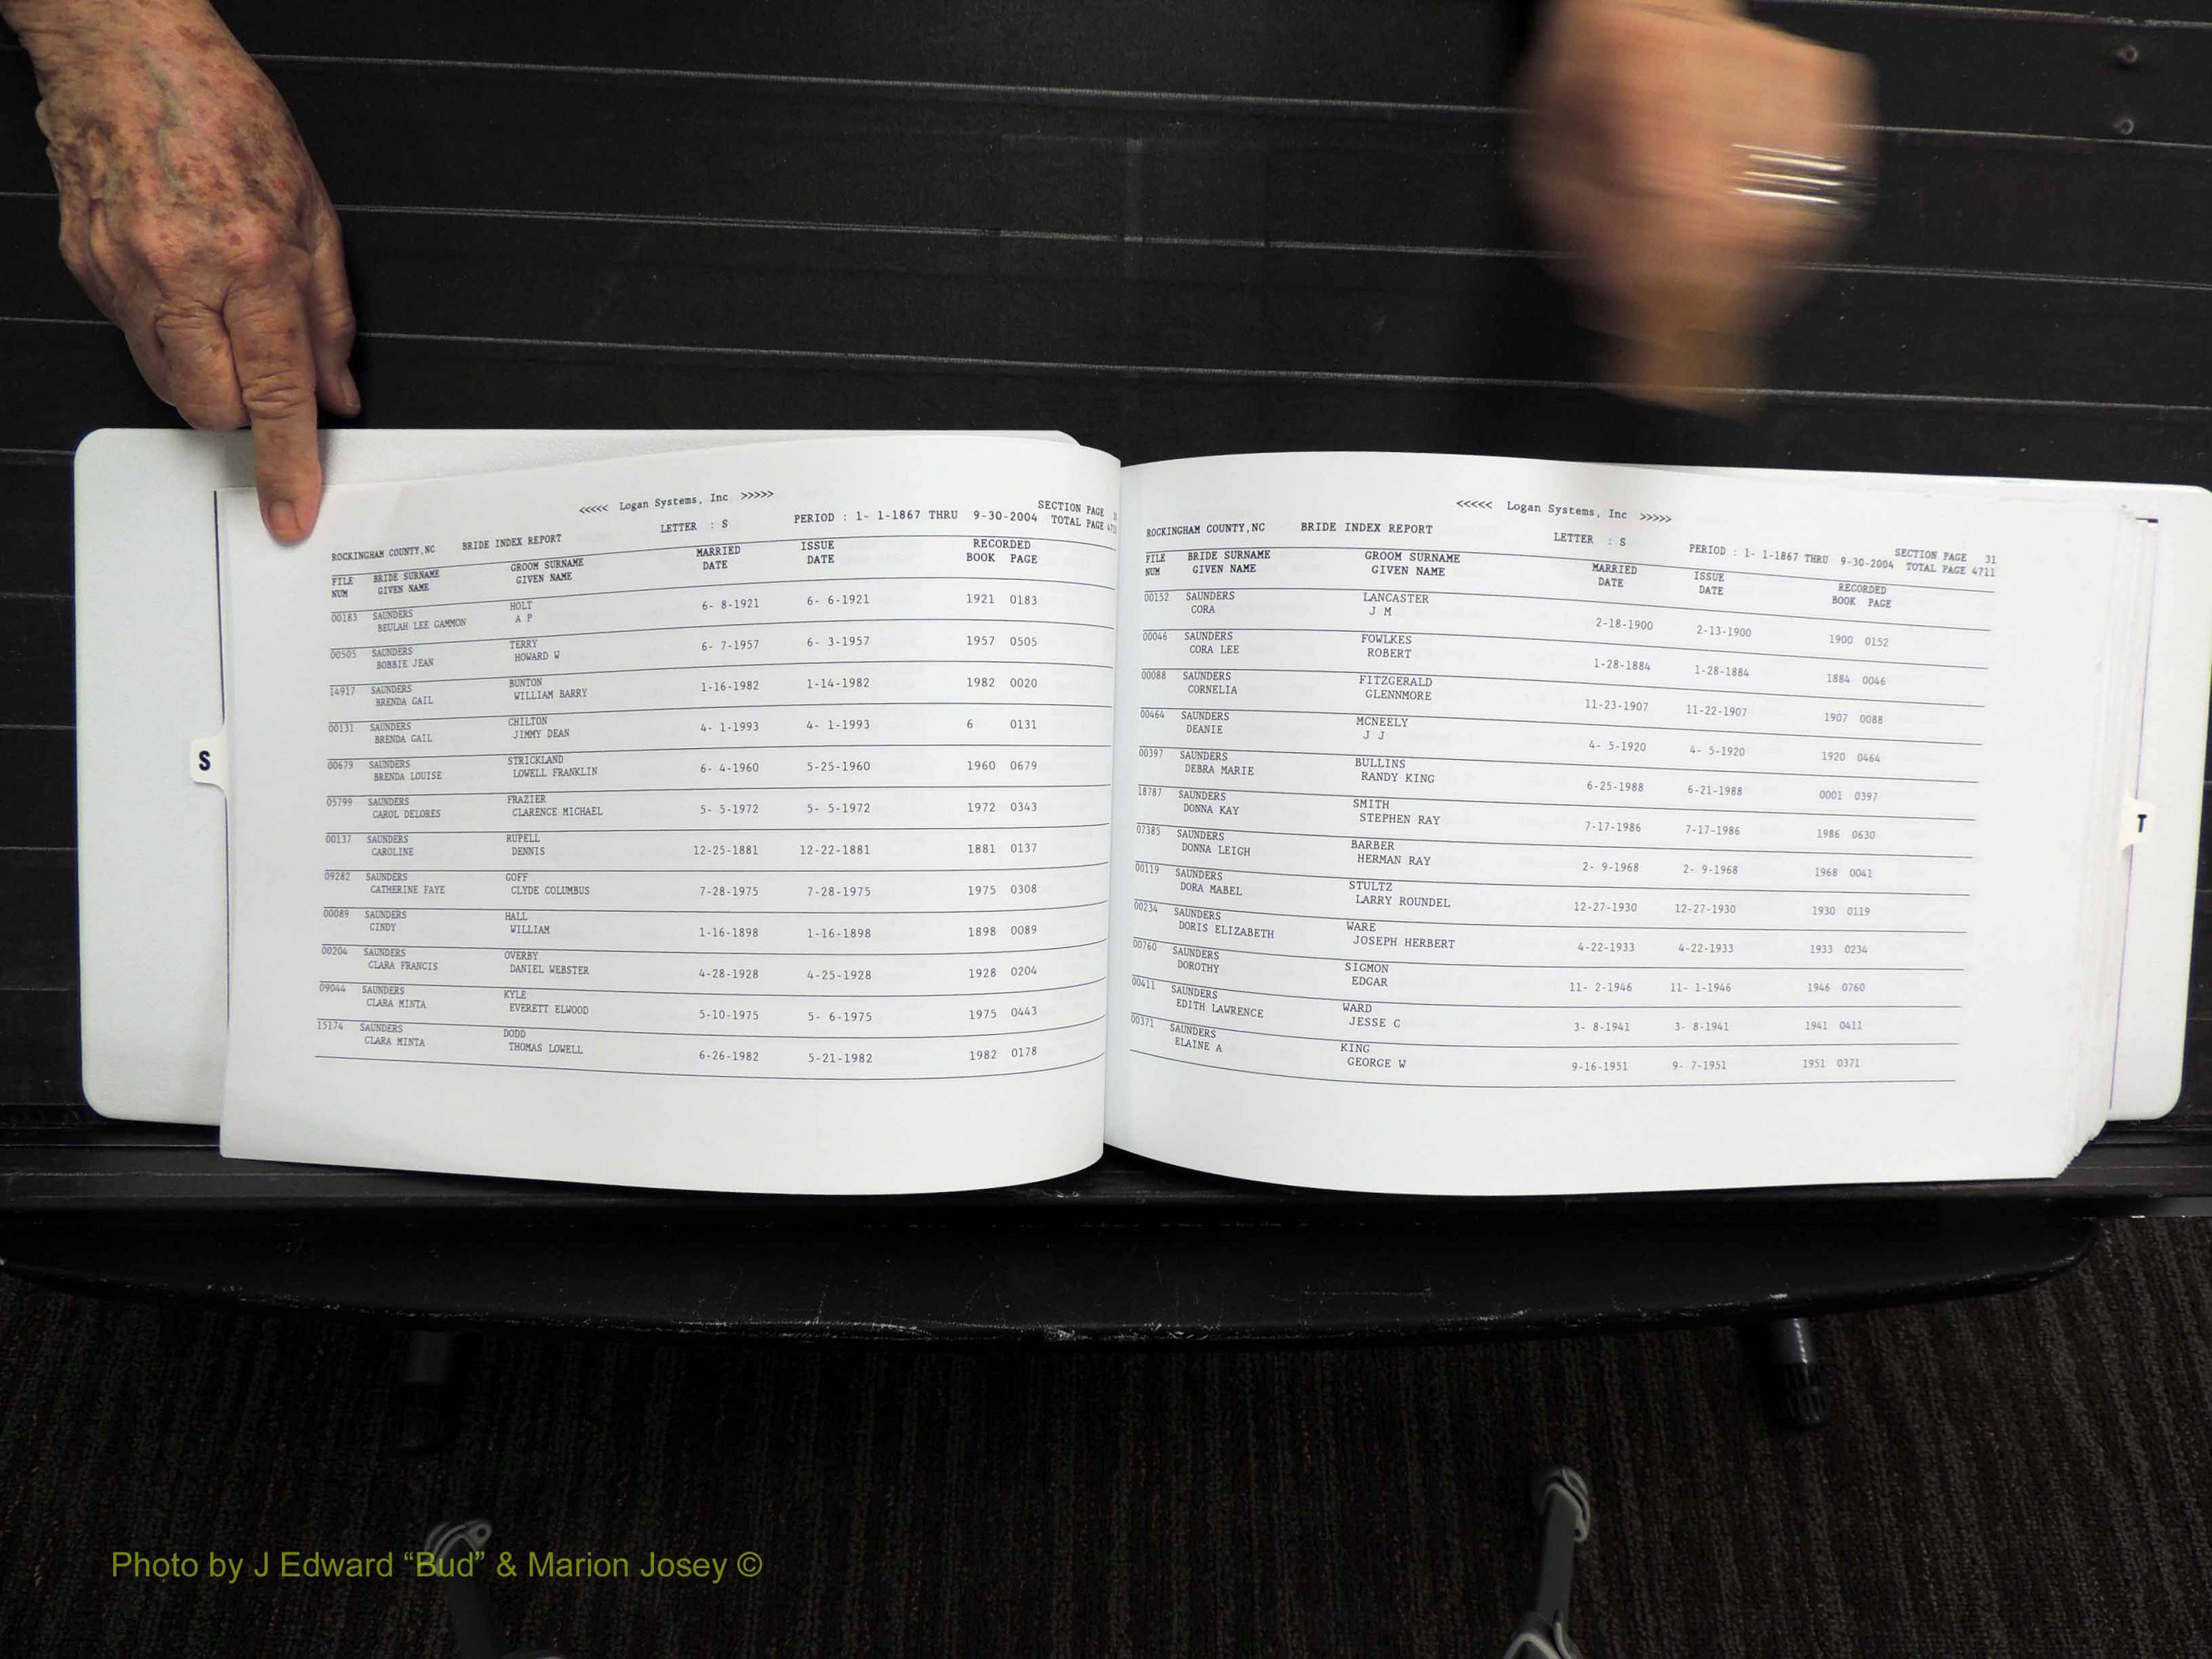 <<<<< Logan Systems, Inc >>>>>
ROCKINGHAM COUNTY,NC BRIDE INDEX REPORT LETTER : S PERIOD : 1- 1-1867 THRU 9-30-2004 SECTION PAGE
TOTAL PAGE
FILE BRIDE SURNAME GROOM SURNAME MARRIED ISSUE RECORDED
NUM GIVEN NAME GIVEN NAME DATE DATE BOOK PAGE
00183 SAUNDERS HOLT 6- 8-1921 6- 6-1921 1921 0183
BEULAH LEE GAMMON A P
00505 SAUNDERS TERRY 6- 7-1957 6- 3-1957 1957 0505
BOBBIE JEAN HOWARD W
14917 SAUNDERS BUNTON 1-16-1982 1-14-1982 1982 0020
BRENDA GAIL WILLIAM BARRY
00131 SAUNDERS CHILTON 4- 1-1993 4- 1-1993 6 0131
BRENDA GAIL JIMMY DEAN
00679 SAUNDERS STRICKLAND 6- 4-1960 5-25-1960 1960 0679
BRENDA LOUISE LOWELL FRANKLIN
05799 SAUNDERS FRAZIER 5- 5-1972 5- 5-1972 1972 0343
CAROL DELORES CLARENCE MICHAEL
00137 SAUNDERS RUPELL 12-25-1881 12-22-1881 1881 0137
CAROLINE DENNIS
09282 SAUNDERS GOFF 7-28-1975 7-28-1975 1975 0308
CATHERINE FAYE CLYDE COLUMBUS
00089 SAUNDERS HALL 1-16-1898 1-16-1898 1898 0089
CINDY WILLIAM
00204 SAUNDERS OVERBY 4-28-1928 4-25-1928 1928 0204
CLARA FRANCIS DANIEL WEBSTER
09044 SAUNDERS KYLE 5-10-1975 5- 6-1975 1975 0443
CLARA MINTA EVERETT ELWOOD
15174 SAUNDERS DODD 6-26-1982 5-21-1982 1982 0178
CLARA MINTA THOMAS LOWELL
S
<<<<< Logan Systems, Inc >>>>>
ROCKINGHAM COUNTY,NC BRIDE INDEX REPORT LETTER : S PERIOD : 1- 1-1867 THRU 9-30-2004 SECTION PAGE 31
TOTAL PAGE 4711
FILE BRIDE SURNAME GROOM SURNAME MARRIED ISSUE RECORDED
NUM GIVEN NAME GIVEN NAME DATE DATE BOOK PAGE
00152 SAUNDERS LANCASTER 2-18-1900 2-13-1900 1900 0152
CORA J M
00046 SAUNDERS FOWLKES 1-28-1884 1-28-1884 1884 0046
CORA LEE ROBERT
00088 SAUNDERS FITZGERALD 11-23-1907 11-22-1907 1907 0088
CORNELIA GLENNMORE
00464 SAUNDERS MCNEELY 4- 5-1920 4- 5-1920 1920 0464
DEANIE J J
00397 SAUNDERS BULLINS 6-25-1988 6-21-1988 0001 0397
DEBRA MARIE RANDY KING
18787 SAUNDERS SMITH 7-17-1986 7-17-1986 1986 0630
DONNA KAY STEPHEN RAY
07385 SAUNDERS BARBER 2- 9-1968 2- 9-1968 1968 0041
DONNA LEIGH HERMAN RAY
00119 SAUNDERS STULTZ 12-27-1930 12-27-1930 1930 0119
DORA MABEL LARRY ROUNDEL
00234 SAUNDERS WARE 4-22-1933 4-22-1933 1933 0234
DORIS ELIZABETH JOSEPH HERBERT
00760 SAUNDERS SIGMON 11- 2-1946 11- 1-1946 1946 0760
DOROTHY EDGAR
00411 SAUNDERS WARD 3- 8-1941 3- 8-1941 1941 0411
EDITH LAWRENCE JESSE C
00371 SAUNDERS KING 9-16-1951 9- 7-1951 1951 0371
ELAINE A GEORGE W
T
Photo by J Edward “Bud” & Marion Josey ©